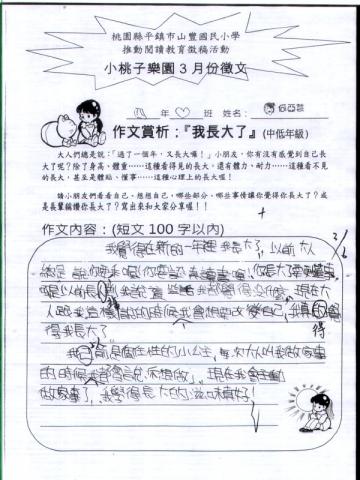 桃園縣平鎮市山豐國民小學
推動閱讀教育徵稿活動
小桃子樂園3月份徵文
年 班 姓名：
作文賞析：『我長大了』(中低年級)
大人們總是說：「過了一個年，又長大囉！」小朋友，你有沒有感覺到自己長
大了呢？除了身高、體重……這種看得見的長大，還有體力、耐力……這種看不見
的長大，甚至是體貼、懂事……這種心理上的長大唷！
請小朋友們看看自己、想想自己，哪些部分、哪些事情讓你覺得你長大了？或
是長輩稱讚你長大了？寫出來和大家分享喔！！
作文內容：(短文100字以內)
我覺得在新的一年裡我長大了，以前大
人跟我這樣說的時候我會想要改變自己，我真的覺
得
得我長大了
我以前是個任性的小公主，每次大人叫我做家事
的時候我都會說「不想做」，現在我會主動
做家事了，我覺得長大的滋味真好！